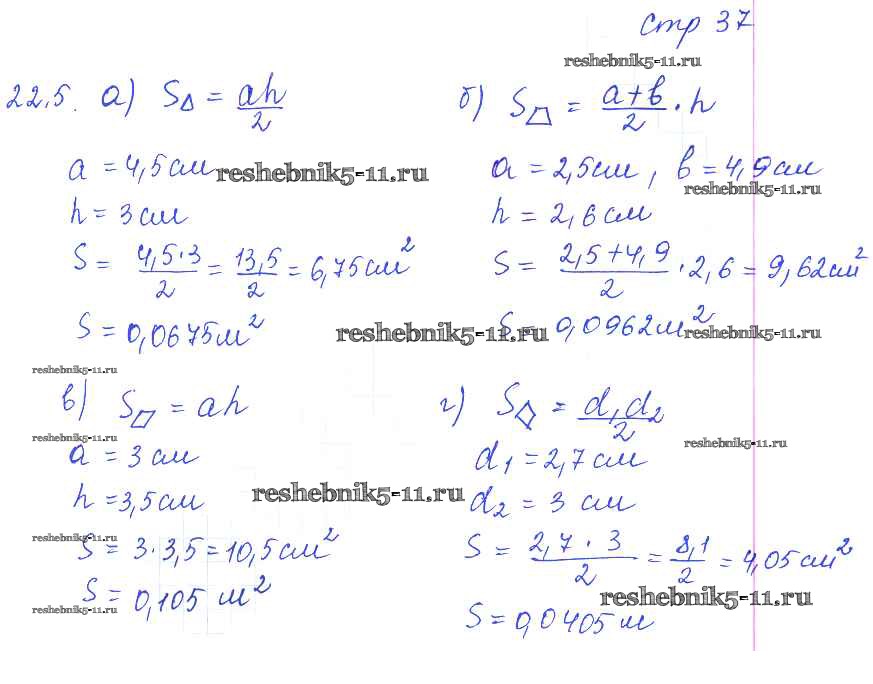 стр 37
reshebnik5-11.ru
22,5. а) S△ = ah/2
a = 4,5 см
reshebnik5-11.ru
h = 3 см
S = 4,5·3/2 = 13,5/2 = 6,75 см²
S = 0,0675 м²
reshebnik5-11.ru
б) S = a+b/2 · h
a = 2,5 см, b = 4,9 см
reshebnik5-11.ru
h = 2,6 см
S = 2,5+4,9/2 · 2,6 = 9,62 см²
S = 0,0962 м²
reshebnik5-11.ru
reshebnik5-11.ru
в) S▱ = ah
reshebnik5-11.ru
a = 3 см
h = 3,5 см
reshebnik5-11.ru
reshebnik5-11.ru
S = 3·3,5 = 10,5 см²
S = 0,105 м²
reshebnik5-11.ru
г) S◇ = d₁d₂/2
reshebnik5-11.ru
d₁ = 2,7 см
d₂ = 3 см
S = 2,7·3/2 = 8,1/2 = 4,05 см²
reshebnik5-11.ru
S = 0,0405 м